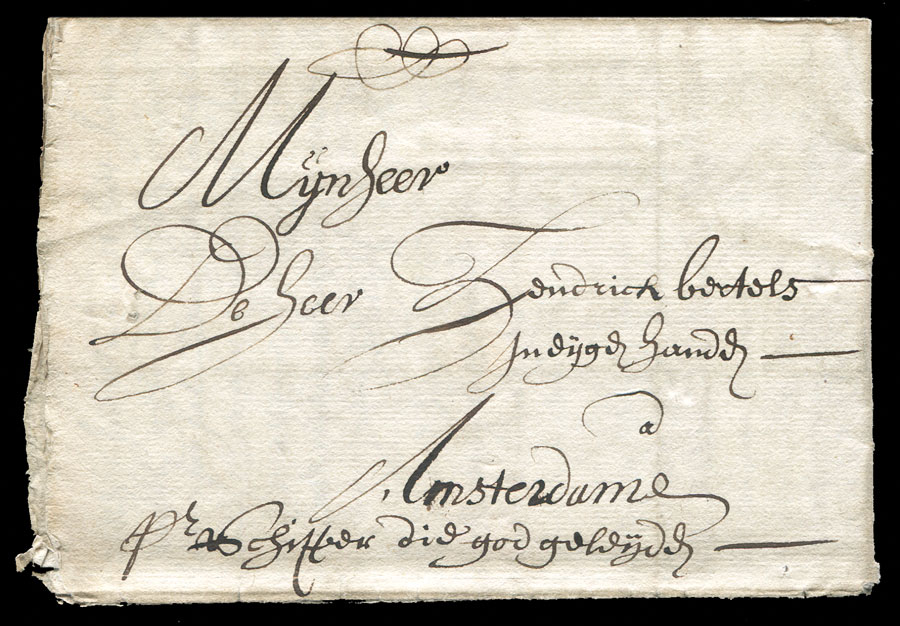 Mijnheer
De heer Hendrick bertels
In eijgen handen
a
Amsterdame
pr Schipper die god geleijde